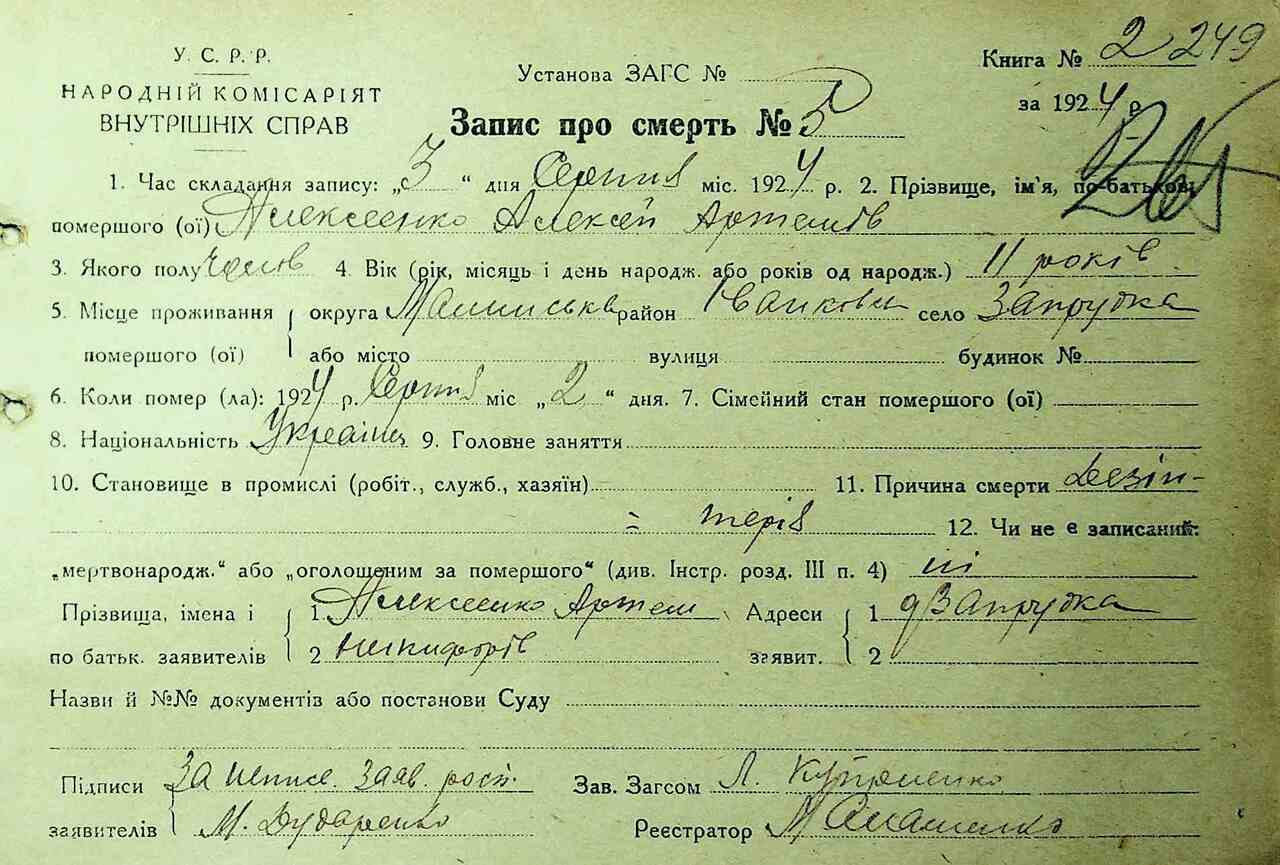 У. С. Р. Р.
НАРОДНІЙ КОМІСАРІЯТ
ВНУТРІШНІХ СПРАВ
Установа ЗАГС №
Запис про смерть № 5
Книга № 2 249
за 1924 р.
1. Час складання запису: „3“ дня Серпня міс. 1924 р. 2. Прізвище, ім'я, по-батькові
помершого (ої) Алексеенко Алексей Артемів
3. Якого полу Чолов 4. Вік (рік, місяць і день народж. або років од народж.) 11 років
5. Місце проживання округа район село Запрудка
помершого (ої) або місто вулиця будинок №
6. Коли помер (ла): 1924 р. Серпня міс „2“ дня. 7. Сімейний стан помершого (ої)
8. Національність Украінец 9. Головне заняття
10. Становище в промислі (робіт., служб., хазяїн) 11. Причина смерти Дезін-
= терія 12. Чи не є записаний:
„мертвонародж.“ або „оголошеним за помершого“ (див. Інстр. розд. III п. 4) ні
Прізвища, імена і 1. Алексеенко Артем Адреси 1 д Запрудка
по батьк. заявителів 2 Никифорів заявит. 2
Назви й №№ документів або постанови Суду
Підписи За непис. заяв. росп. Зав. Загсом Л. Куприенко
заявителів М. Дударенко Реєстратор